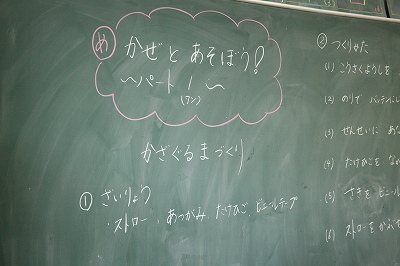 め かぜとあそぼう!
〜パート1〜
(ワン)
かざぐるまづくり
① ざいりょう
・ストロー、あつがみ、たけひご、ビニールテープ
② つくりかた
(1) こうさくようしを
(2) のりで
(3) せんせいに あな
(4) たけひごを なが
(5) さきを ビニール
(6) ストローを かぶせ